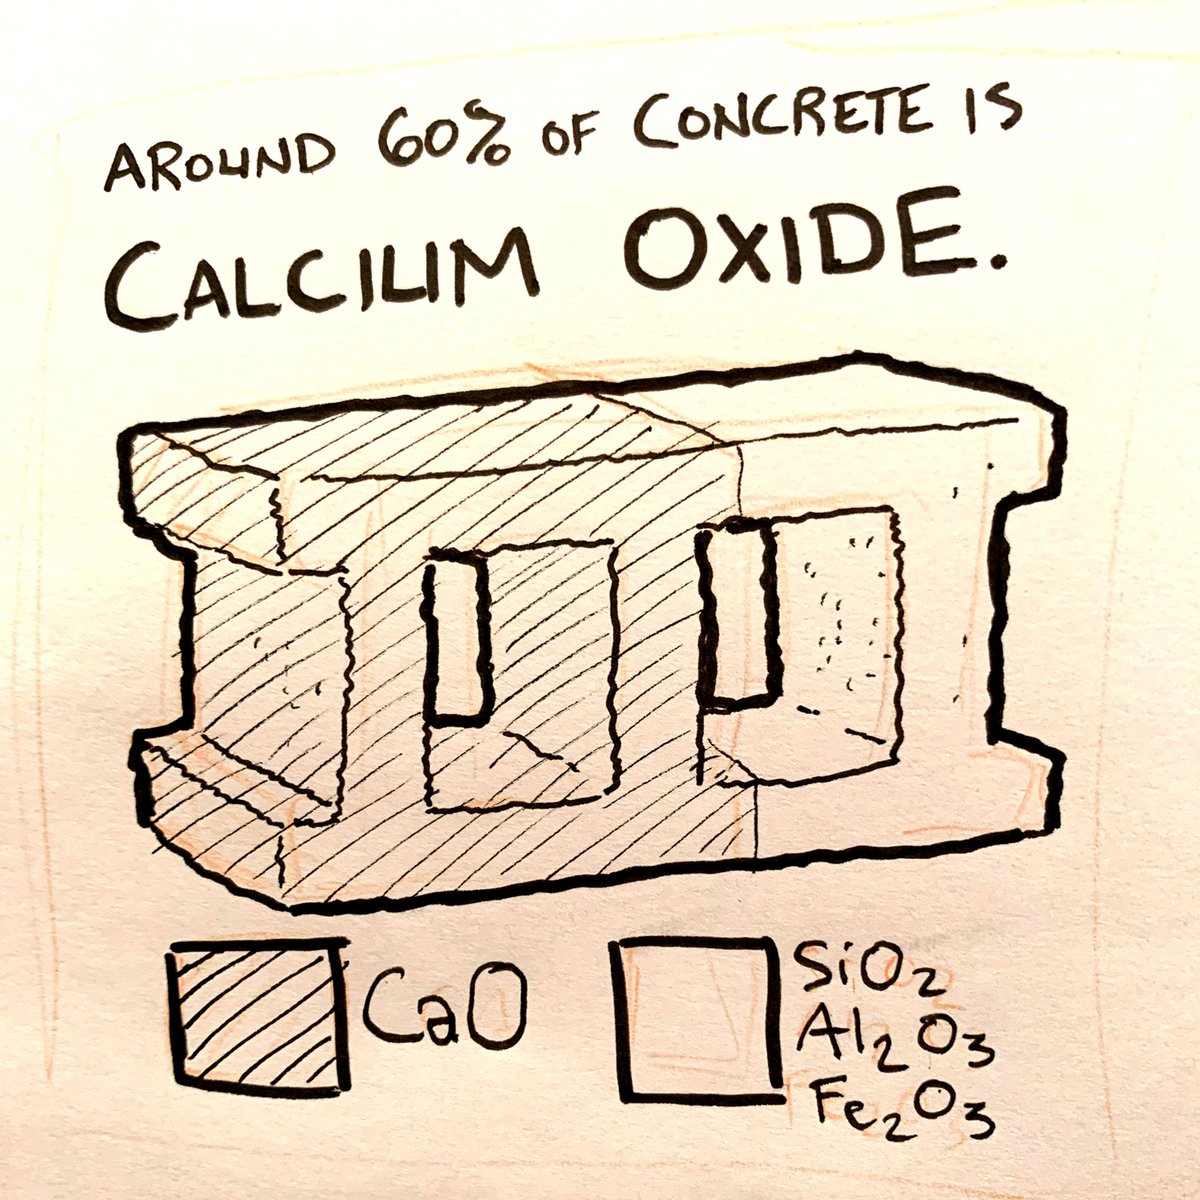 AROUND 60% OF CONCRETE IS
CALCIUM OXIDE.
CaO
SiO2
Al2O3
Fe2O3